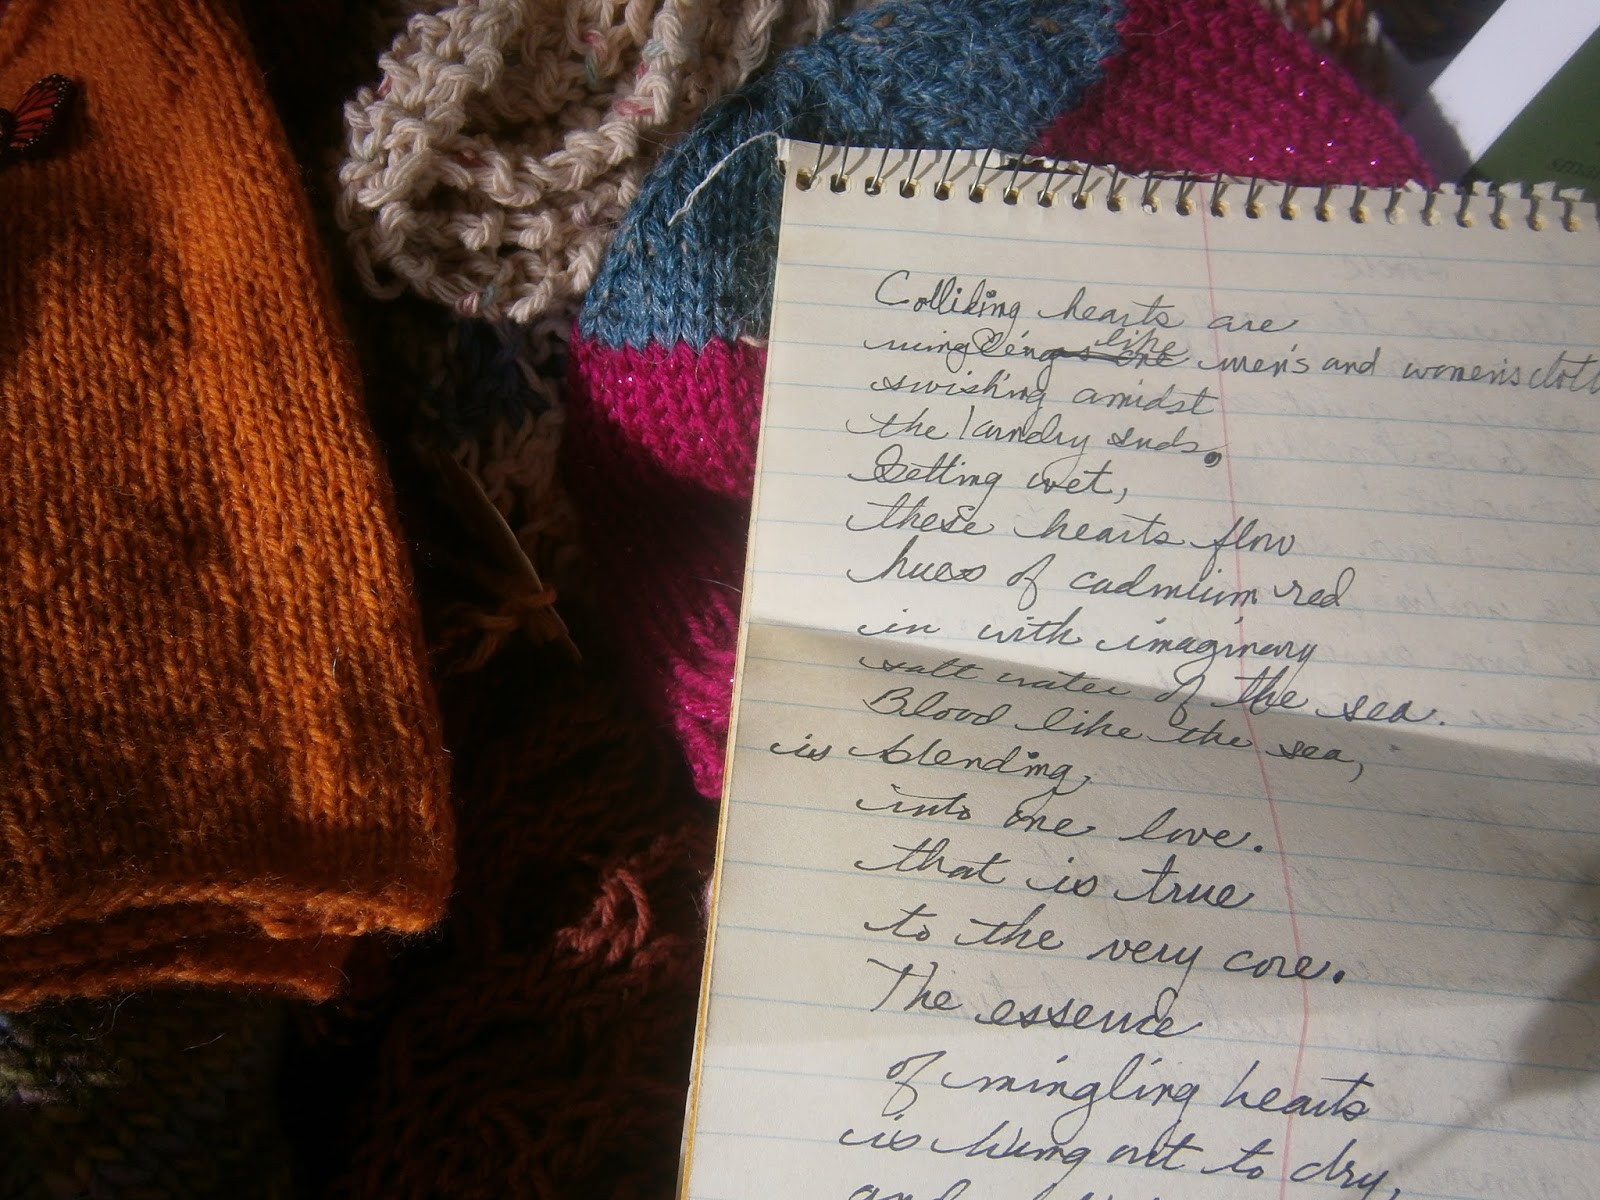 Colliding hearts are
mingling like men's and women's cloth
swishing amidst
the laundry suds.
Getting wet,
these hearts flow
hues of cadmium red
in with imaginary
salt water of the sea.
Blood like the sea,
is blending,
into one love.
that is true
to the very core.
The essence
of mingling hearts
is hung out to dry,
and